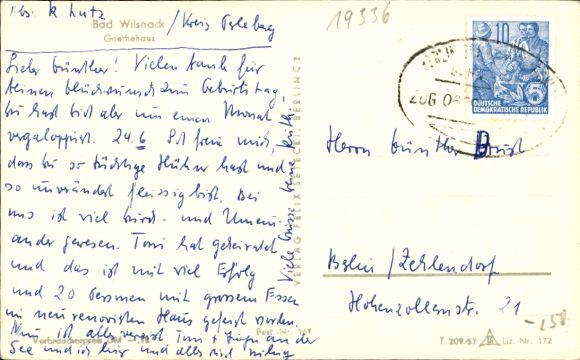 Abs: R. Lutz / Kreis Perleberg
Bad Wilsnack
Goethehaus
Lieber Günther! Vielen Dank für
Deinen Glückwunsch zum Geburtstag,
Du hast Dich aber um einen Monat
vergaloppiert. 24.6 Ist freue mich,
dass Du so tüchtige Hühner hast und
so unverändert fleissig bist. Bei
uns ist viel und
ander gewesen. Toni hat geheiratet
und das ist mit viel Erfolg
und 20 Personen mit grossem Essen
im neurenovierten Haus gefeiert worden.
Nun ist alles verreist Toni + an der
See und ich hier und alles sind
Viele Grüsse Deine Ruth
Verbraucherpreis DM
Best.-Nr. 167
VERLAG FELIX SETECKI, BERLIN C 2
19336
10
5
DEUTSCHE
DEMOKRATISCHE REPUBLIK
BERLIN
ZUG
Herrn Günther
Berlin / Zehlendorf
Hohenzollernstr. 21
-150
T 209/57 Liz.-Nr. 172